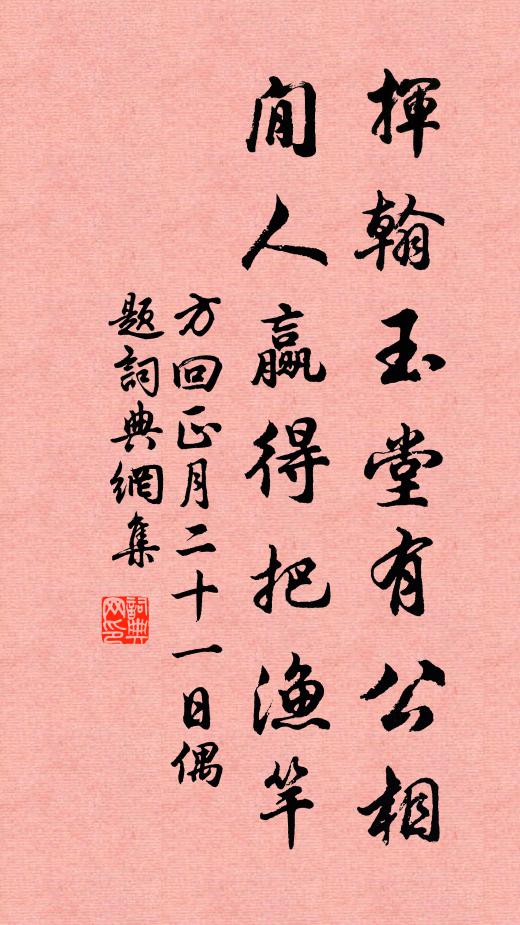 揮翰玉堂有公相
閒人贏得把漁竿
方回正月二十一日偶
題詞典網集
詞典网印